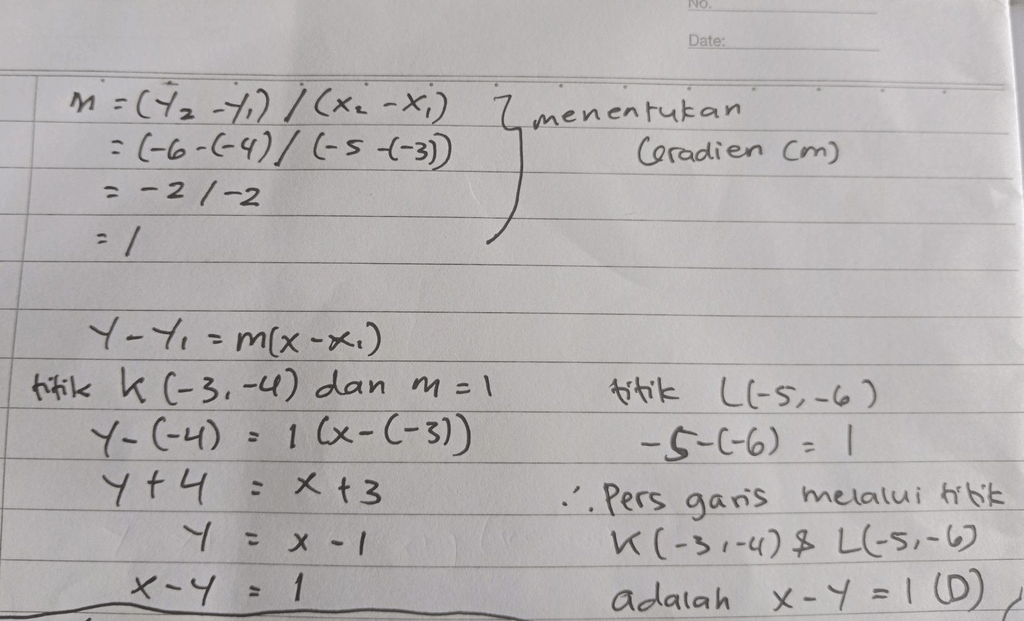 No.
Date:
m = (Y₂ - Y₁) / (X₂ - X₁)
= (-6 - (-4) / (-5 -(-3))
= -2 / -2
= 1
menentukan
Gradien (m)
Y - Y₁ = m(x - x₁)
titik K (-3, -4) dan m = 1
Y - (-4) = 1 (x - (-3))
Y + 4 = x + 3
Y = x - 1
x - y = 1
titik L(-5, -6)
-5 - (-6) = 1
∴ Pers garis melalui titik
K(-3, -4) & L(-5, -6)
adalah x - y = 1 (D)